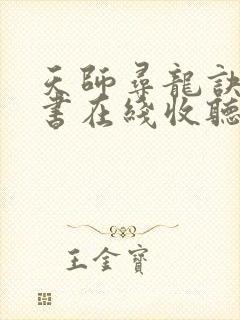 天師尋龍訣
書在綫收聽
王金寶